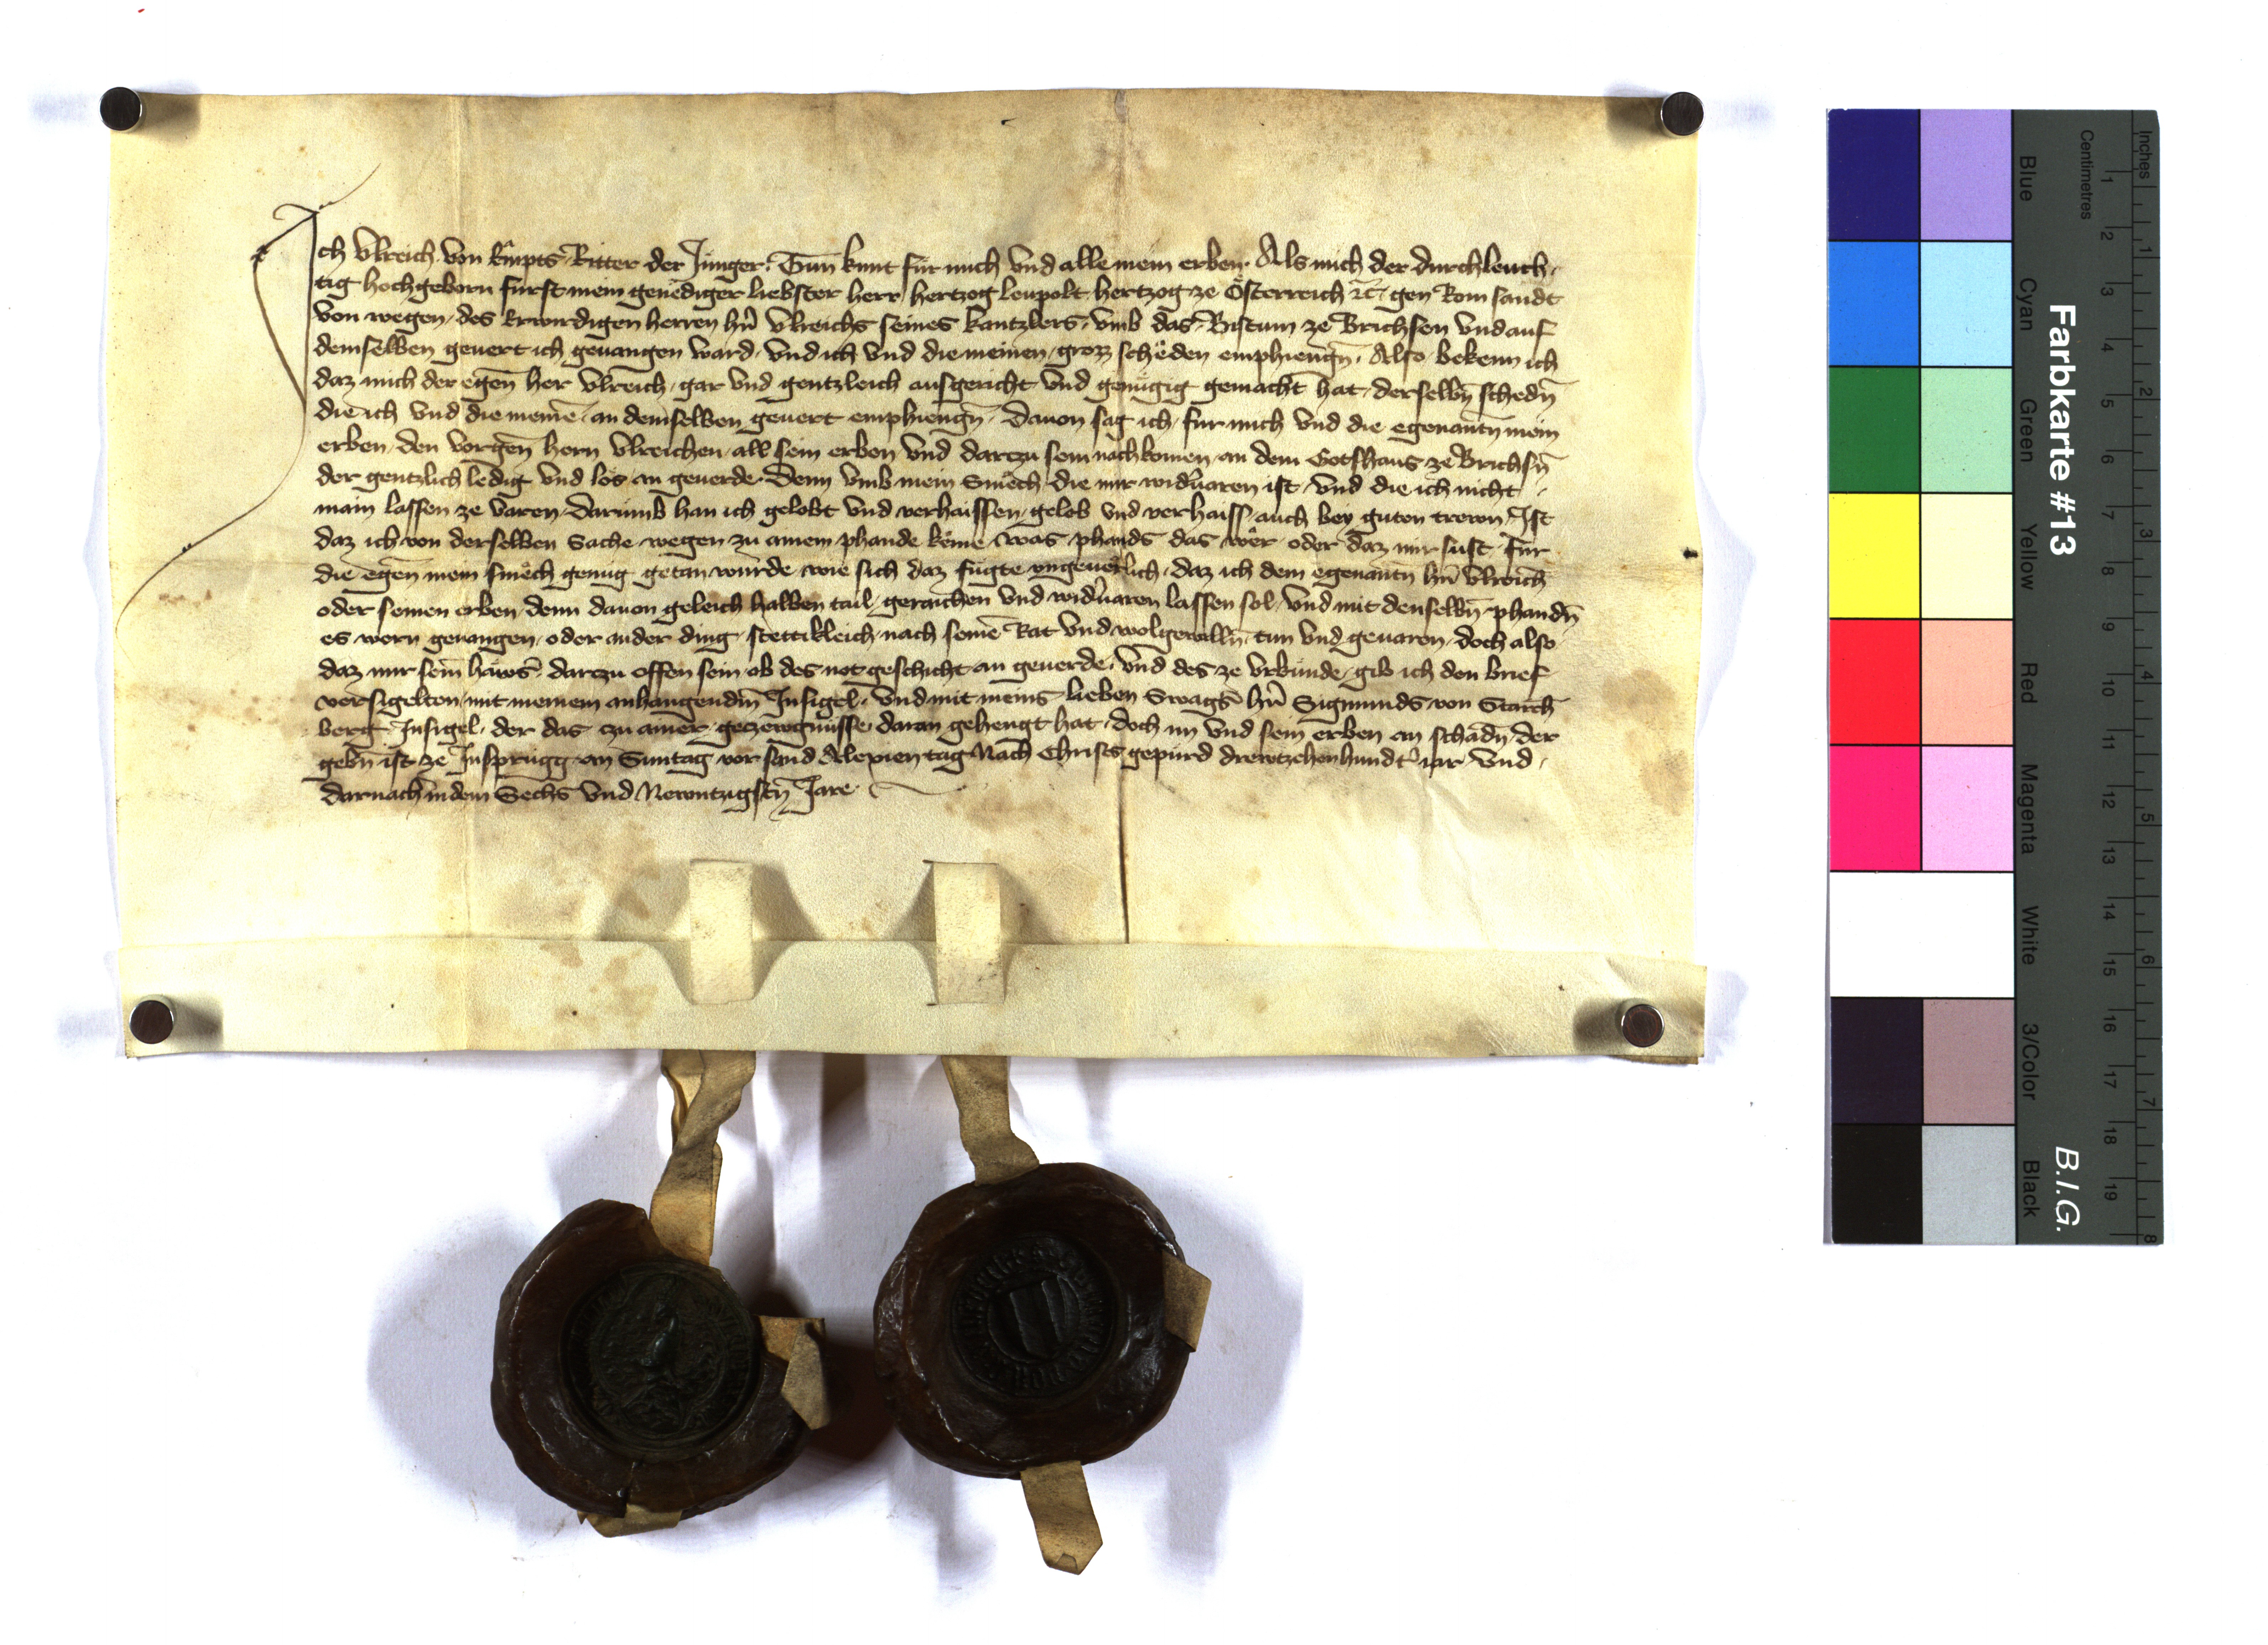 Ich Vlreich von Rûmpts Ritter der Jünger. Tun kunt für mich vnd alle mein erben. Als mich der durchleuch-
tig hochgeborn fürst mein genediger liebster herr hertzog leupolt hertzog ze Österreich ꝛc̄ gen Rom sandt
von wegen des Erwirdigen herren hn̄ Vlreichs seines kantzlers vmb das Bistum ze Brichsen vnd auf
demselben geuert ich geuangen ward, vnd ich vnd die meinen grozz schëden emphiengn̄. Also bekenn ich
daz mich der egen̄ her Vlreich gar vnd gentzleich ausgericht vnd genügig gemacht hat derselbn̄ schedn̄
die ich vnd die meinē an demselben geuert emphiengn̄. Dauon sag ich für mich vnd die egenantn̄ mein
erben den vorgen̄ hern Vlreichen all sein erben vnd darczu sein nachkomen an dem Gotshaus ze Brichsn̄
der gentzlich ledig vnd los an geuerde. Denn vmb mein Smëch die mir widuaren ist vnd die ich nicht
main lassen ze varen darumb han ich gelobt vnd verhaissen gelob vnd verhaiss auch bey guten trewn Ist
daz ich von derselben Sache wegen zu ainem phande këme was phands das wër oder daz mir sust für
die egen̄ mein smëch genug getan würde wie sich daz fügte vngeuërlich daz ich dem egenantn̄ hn̄ Vlreich
oder seinen erben denn dauon geleich halben tail geraichen vnd widuaren lassen sol vnd mit denselbn̄ phandn̄
es wern geuangen oder ander ding stettikleich nach seinē Rat vnd wolgeualln̄ tun vnd geuaren doch also
daz mir sein̄ häwsꝭ darzu offen sein ob des not geschicht an geuerde. vnd des ze vrkünde gib ich den brief
versigelten mit meinem anhangendm̄ Insigel vnd mit meins lieben Swagꝭs hn̄ Sigmunds von Starch
berg Insigel der das zu ainer gezewgnüsse daran gehengt hat doch im vnd sein erben an schadn̄ der
gebn̄ ist ze Insprugg am Suntag vor sand Alexien tag Nach Christs gepurd drewtzehenhundt iar vnd
darnach in dem Sechs vnd Newntzigstn̄ Jare
Farbkarte #13
B.I.G.
Blue
Cyan
Green
Yellow
Red
Magenta
White
3/Color
Black
Centimetres
Inches
1
2
3
4
5
6
7
8
9
10
11
12
13
14
15
16
17
18
19
1
2
3
4
5
6
7
8